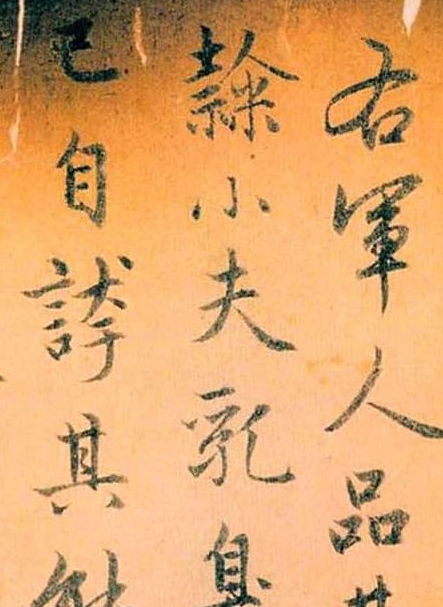 右軍人品甚
隸小夫乳臭
已自誇其能